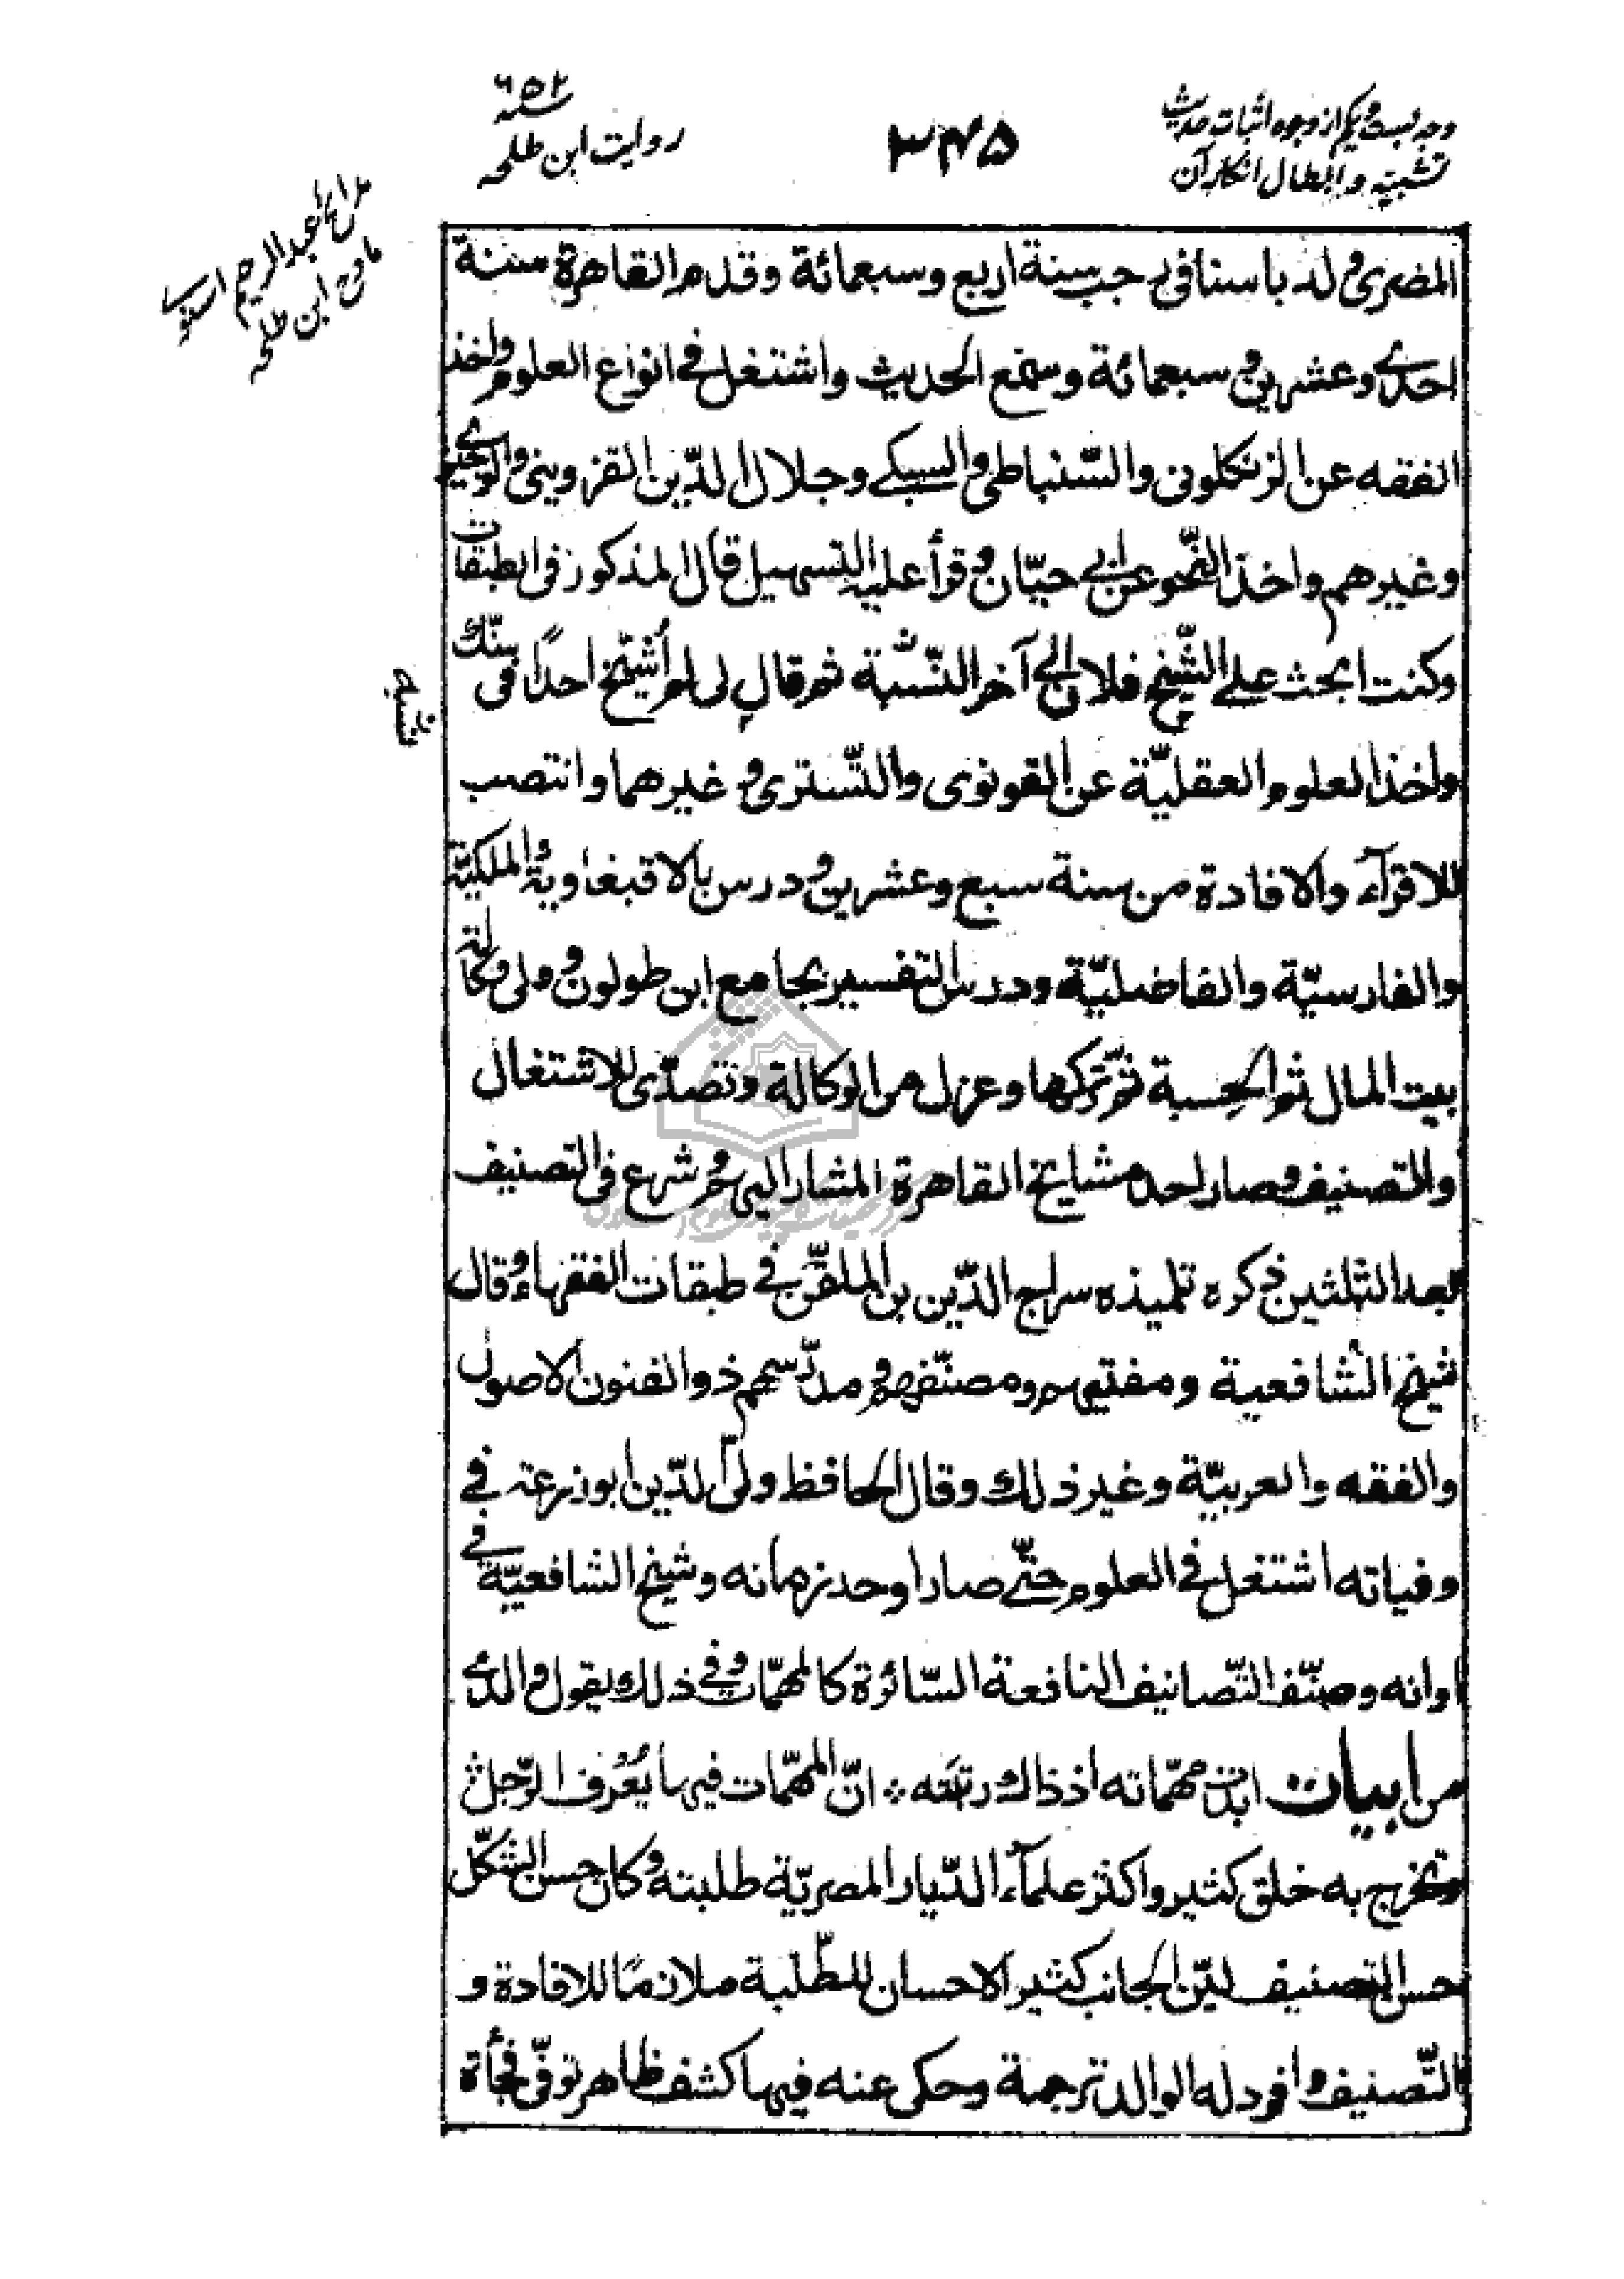 وجه بست و یکم از وجوه اثبات حدیث
تشبیه و ابطال انکار آن
۳۴۵
سنه ۶۵۲
روایت ابن طلحه
عبد الرحیم اسنوی
مادح ابن طلحه
المضرى ولد باسنا فى رجب سنة اربع وسبعمائة وقدم القاهرة سنة
احدى وعشرين و سبعمائة وسمع الحديث واشتغل فى انواع العلوم واخذ
الفقه عن الزنكلونى والسّنباطى والسبكى وجلال الدّين القزوينى والوجيزى
وغيرهم واخذ النّحو عن ابى حيّان وقرأ عليه التسهيل قال المذكور فى الطبقات
وكنت ابحث على الشّيخ فلان الى آخر النّسبة ثم قال لى لم أُشيّخ احدًا فى سنّك
واخذ العلوم العقليّة عن القونوى والتّسترى و غيرهما وانتصب
للاقرآء والافادة من سنة سبع وعشرين و درس بالاقبغاوية والملكيّة
والفارسيّة والفاضليّة ودرس التفسير بجامع ابن طولون وولى وكالة
بيت المال ثم الحِسبة ثمّ تركها وعزل من الوكالة وتصدّى للاشتغال
والتصنيف وصار احد مشايخ القاهرة المشار اليهم وشرع فى التصنيف
بعد الثلثين ذكره تلميذه سراج الدّين بن الملقّن فى طبقات الفقهاء وقال
شيخ الشافعية ومفتيهم ومصنّفهم ومدرّسهم ذو الفنون الاصول
والفقه والعربيّة وغير ذلك وقال الحافظ ولىّ الدّين ابو زرعة فى
وفياته اشتغل فى العلوم حتّى صار اوحد زمانه وشيخ الشافعيّة فى
اوانه وصنّف التّصانيف النافعة السّائرة كالمهمّات وفى ذلك يقول والدى
من ابيات ابدت مهمّاته اذ ذاك رتبَته ؞ انّ المهمّات فيها يُعْرَف الرّجل ؞
وتخرج به خلق كثير واكثر علمآء الدّيار المصريّة طلبته وكان حسن الشكل
حسن التصنيف ليّن الجانب كثير الاحسان للطّلبة ملازمًا للافادة و
التّصنيف وافرد له الوالد ترجمة وحكى عنه فيها كشف ظاهر توفّى فجأة